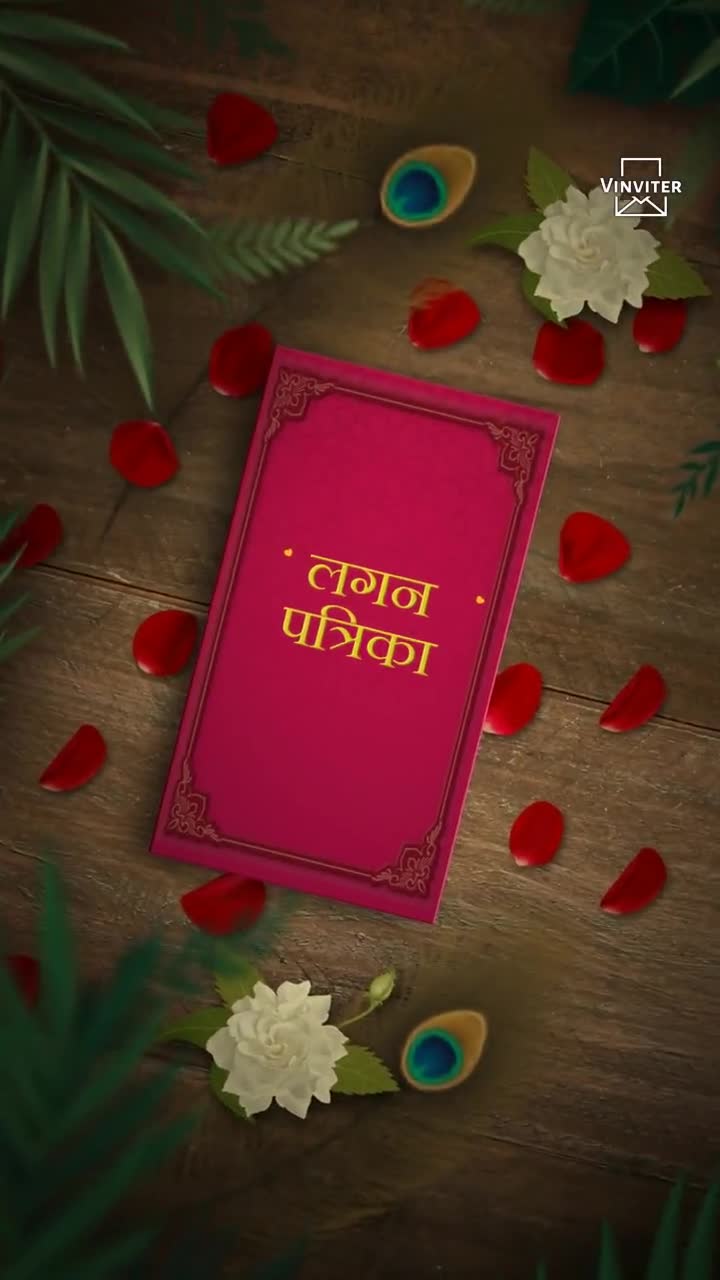 VINVITER
लगन
पत्रिका